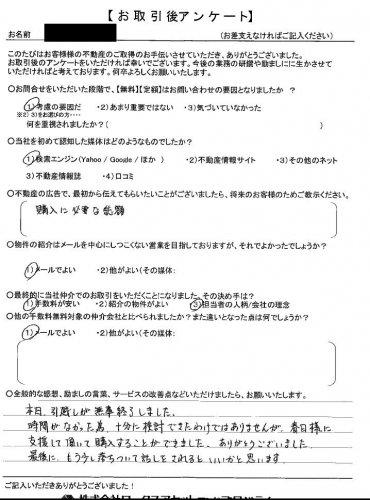 【お取引後アンケート】
お名前 (お差支えなければご記入ください)
このたびはお客様様の不動産のご取得のお手伝いさせていただき、ありがとうございました。
お取引後のアンケートをいただければ幸いでございます。今後の業務の研鑽や励ましにに生かさせて
いただければと考えております。何卒よろしくお願いいたします。
○お問合せをいただいた段階で、【無料】【定額】はお問い合わせの要因となりましたか ?
1)考慮の要因だ ・2)あまり重要ではない ・3)気づいていなかった
※2) 3)をお選びの方・・・・
何を重視されましたか?( )
○当社を初めて認知した媒体はどのようなものでしたか?
1)検索エンジン(Yahoo / Google / ほか ) ・2)不動産情報サイト ・3)その他のネット
3)不動産情報誌 ・4)口コミ
○不動産の広告で、最初から伝えてもらいたいことがございましたら、将来のお客様のためご教示ください。
購入に必要な総額
○物件の紹介はメールを中心にしつこくない営業を目指しておりますが、それでよかったでしょうか?
1)メールでよい ・2)他がよい(その媒体:
○最終的に当社仲介でのお取引をいただくことになりました。その決め手は?
1)手数料が安い ・2)紹介の物件がよい ・3)担当者の人柄/会社の理念
○他の手数料無料対象の仲介会社と比べられましたか?また違いとなった点は何でしょうか?
1)メールでよい ・2)他がよい(その媒体:
○全般的な感想、励ましの言葉、サービスの改善点などいただけましたら、お願いいたします。
本日、引越しが無事終了しました。
時間がなかった為、十分に検討できたわけではありませんが、春日様に
支援して頂いて購入することができました。ありがとうございました。
最後に、もう少し落ちついて話しをされるといいかと思います。
ご記入いただきありがとうございました!